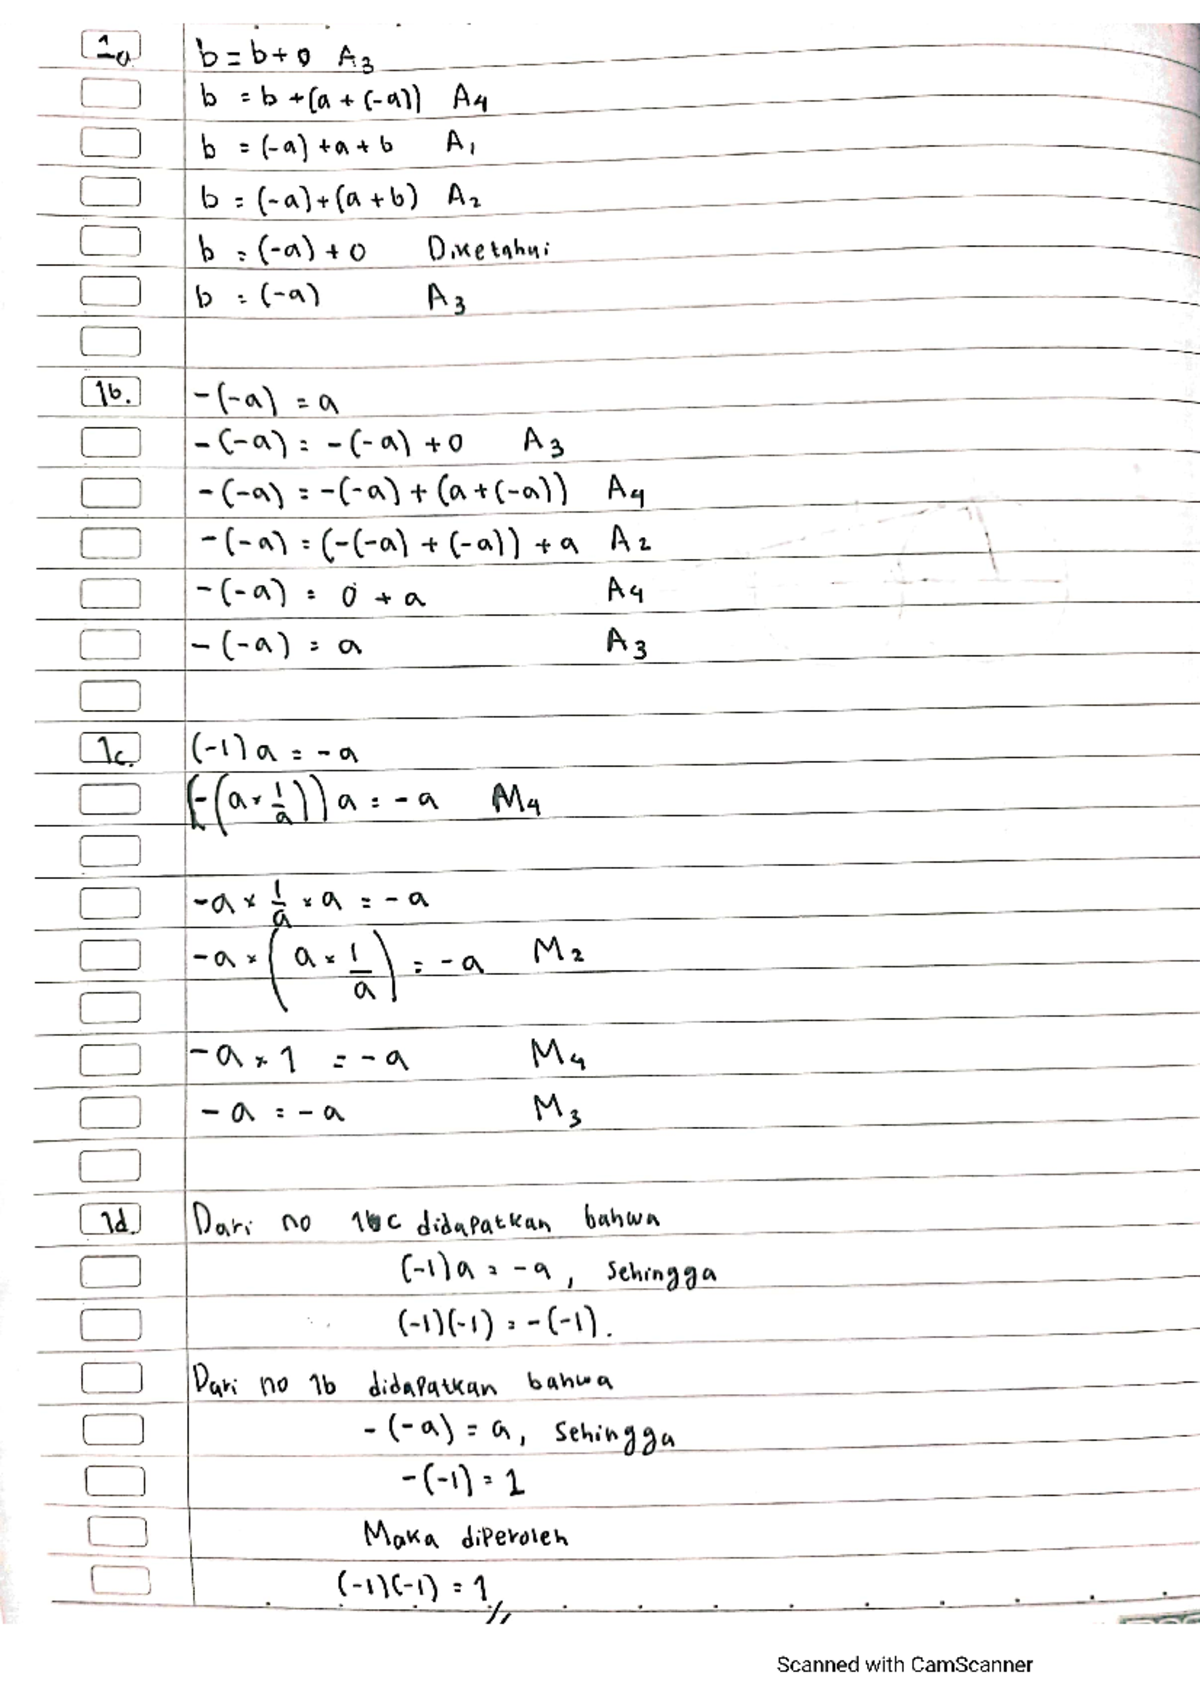 1a b = b + 0 A3
b = b + (a + (-a)) A4
b = (-a) + a + b A1
b = (-a) + (a + b) A2
b = (-a) + 0 Diketahui
b = (-a) A3
1b. -(-a) = a
-(-a) = -(-a) + 0 A3
-(-a) = -(-a) + (a + (-a)) A4
-(-a) = (-(-a) + (-a)) + a A2
-(-a) = 0 + a A4
-(-a) = a A3
1c. (-1) a = -a
(-(a × 1/a)) a = -a M4
-a × 1/a × a = -a
-a × (a × 1/a) = -a M2
-a × 1 = -a M4
-a = -a M3
1d. Dari no 1c didapatkan bahwa
(-1)a = -a, sehingga
(-1)(-1) = -(-1).
Dari no 1b didapatkan bahwa
-(-a) = a, sehingga
-(-1) = 1
Maka diperoleh
(-1)(-1) = 1 //
Scanned with CamScanner